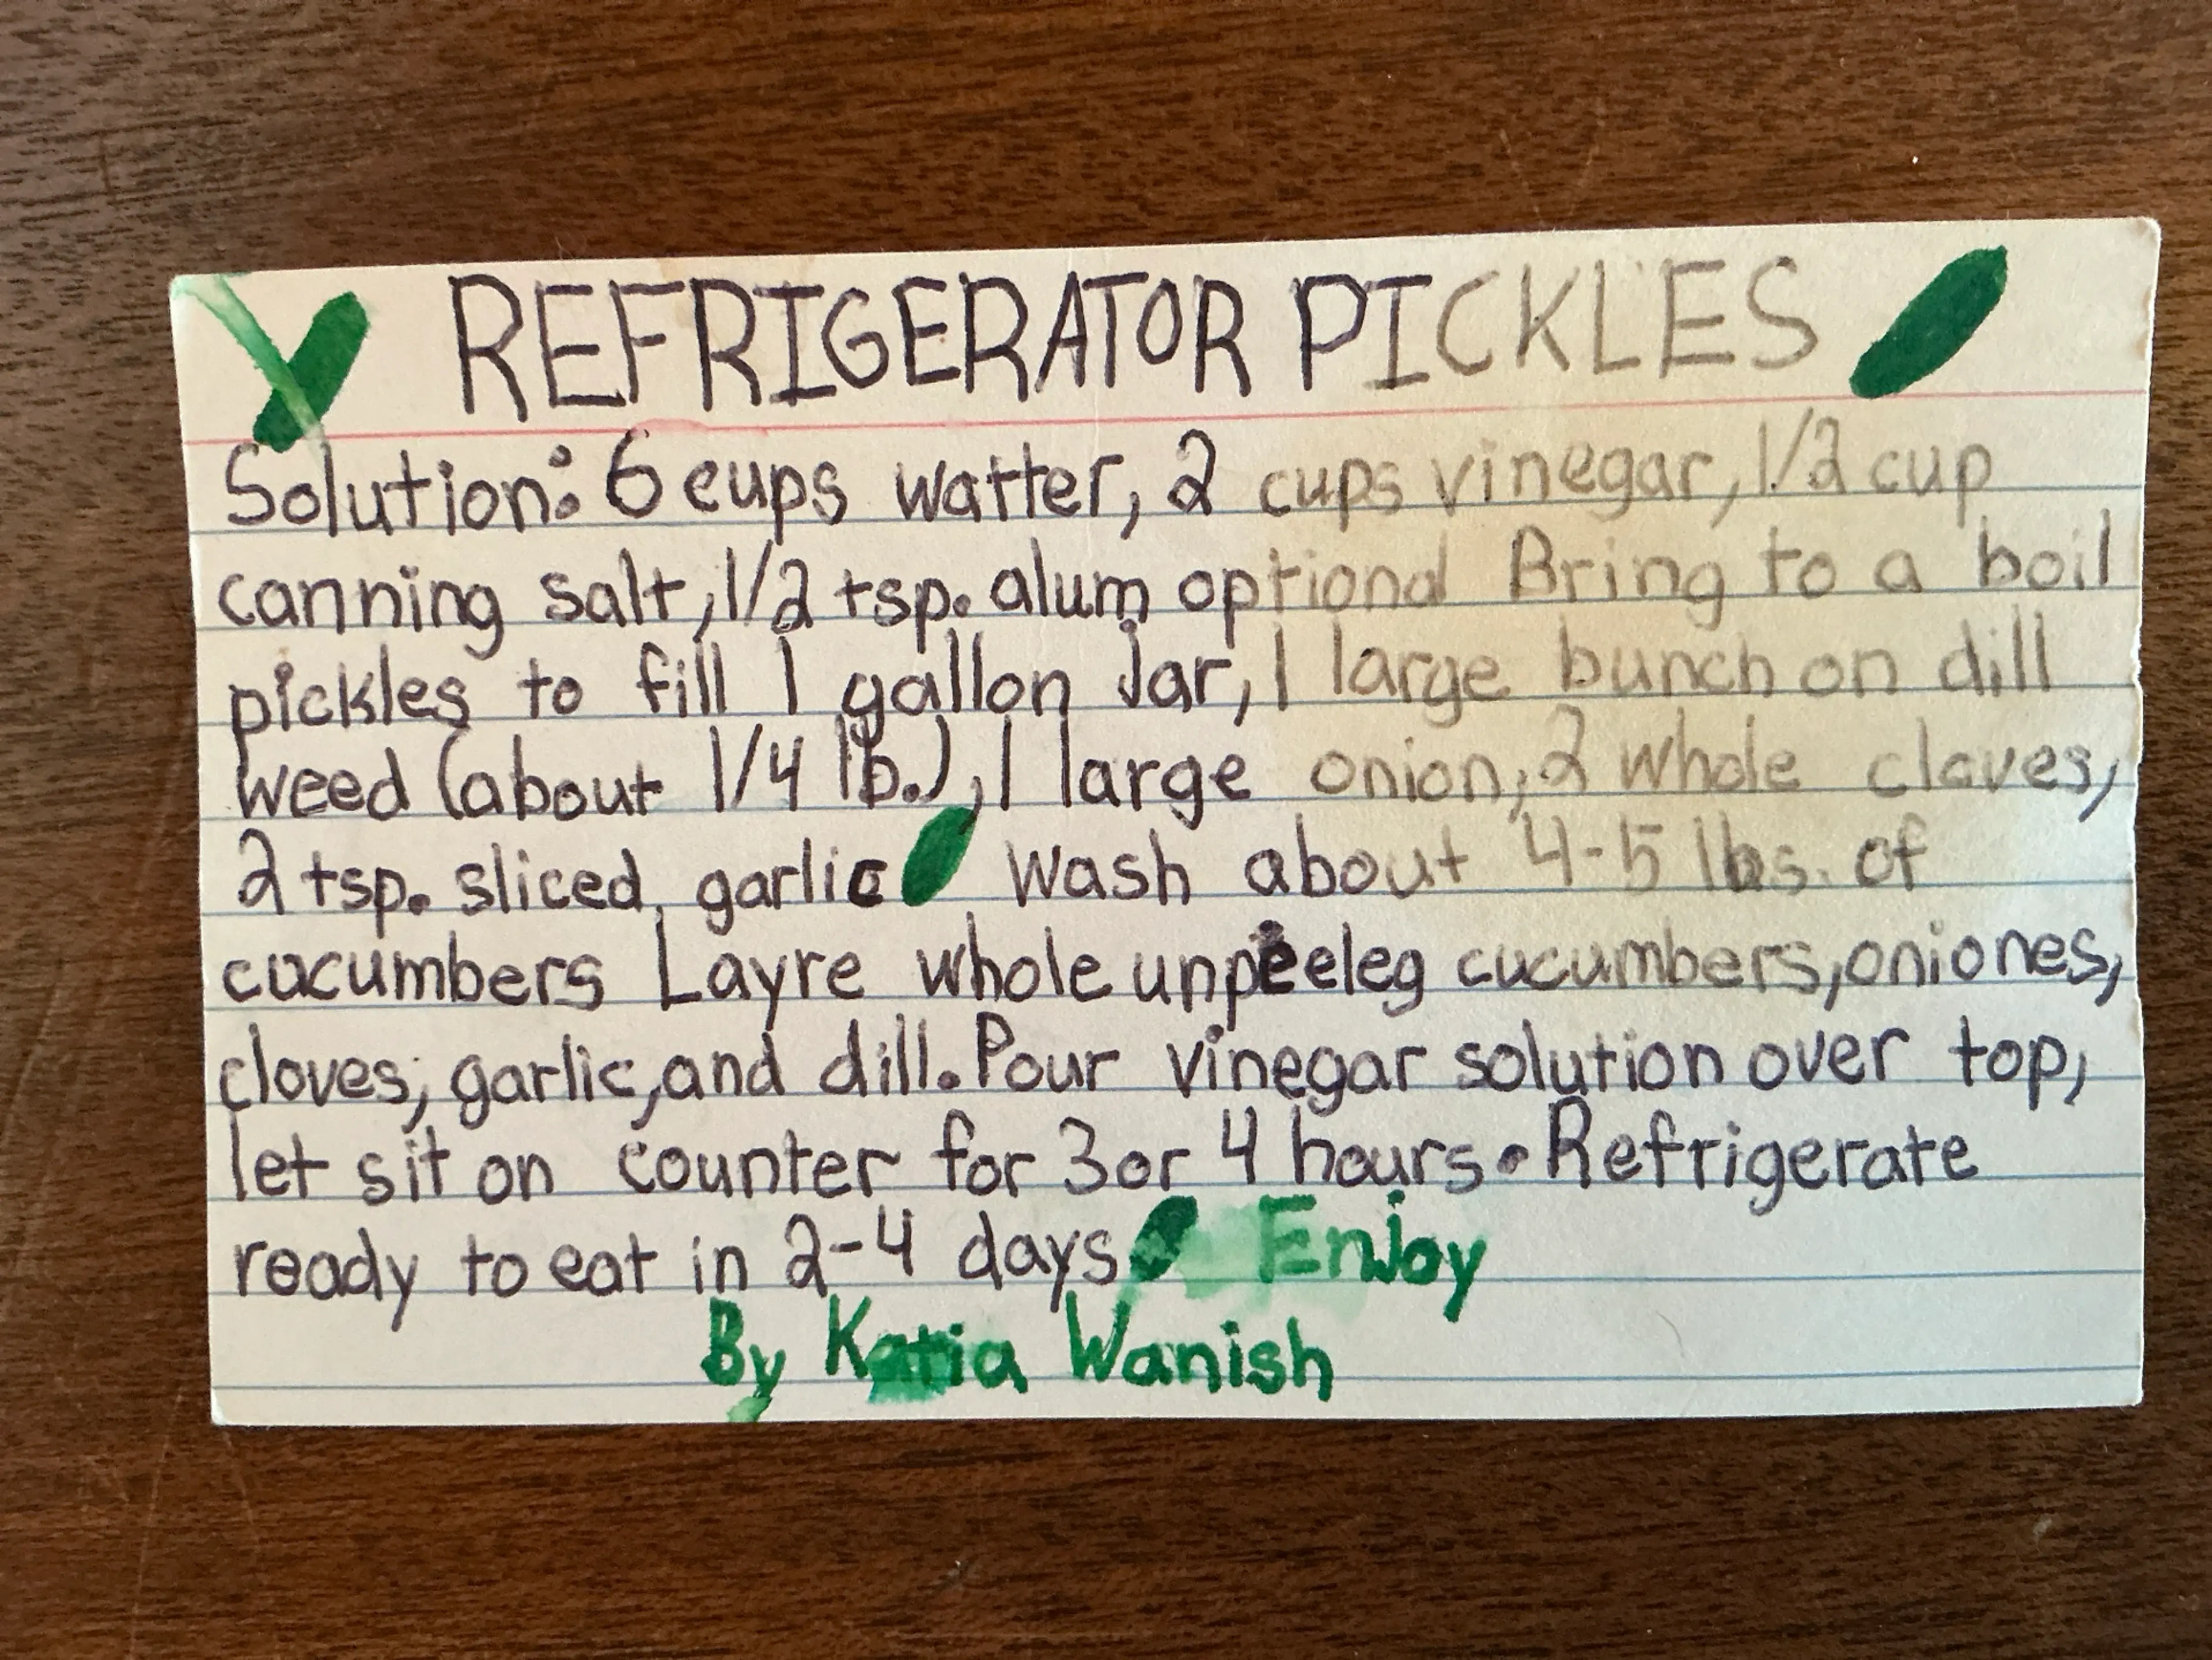 REFRIGERATOR PICKLES
Solution: 6 cups watter, 2 cups vinegar, 1/2 cup
canning salt, 1/2 tsp. alum optional Bring to a boil
pickles to fill 1 gallon Jar, 1 large bunch on dill
weed (about 1/4 lb.), 1 large onion, 2 whole cloves,
2 tsp. sliced garlic Wash about 4-5 lbs. of
cucumbers Layre whole unpeeleg cucumbers, oniones,
cloves, garlic, and dill. Pour vinegar solution over top,
let sit on counter for 3 or 4 hours. Refrigerate
ready to eat in 2-4 days Enjoy
By Katia Wanish